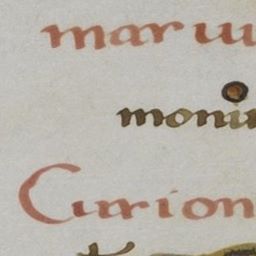 mariu
monin
Curion